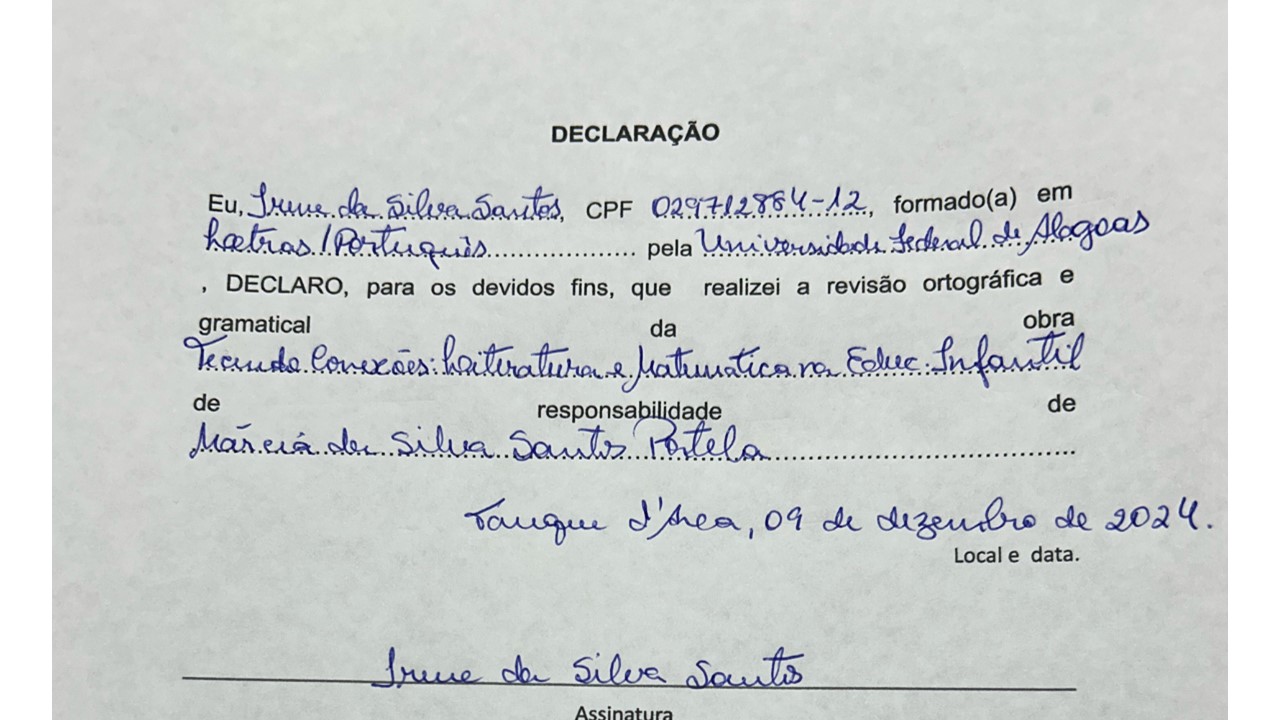 DECLARAÇÃO
Eu, Irene da Silva Santos, CPF 029712884-12, formado(a) em
Letras/Português pela Universidade Federal de Alagoas
, DECLARO, para os devidos fins, que realizei a revisão ortográfica e
gramatical da obra
Tecendo Conexões: Literatura e Matemática na Educ. Infantil
de responsabilidade de
Márcia da Silva Santos Portela
Tanque d'Arca, 09 de dezembro de 2024.
Local e data.
Irene da Silva Santos
Assinatura